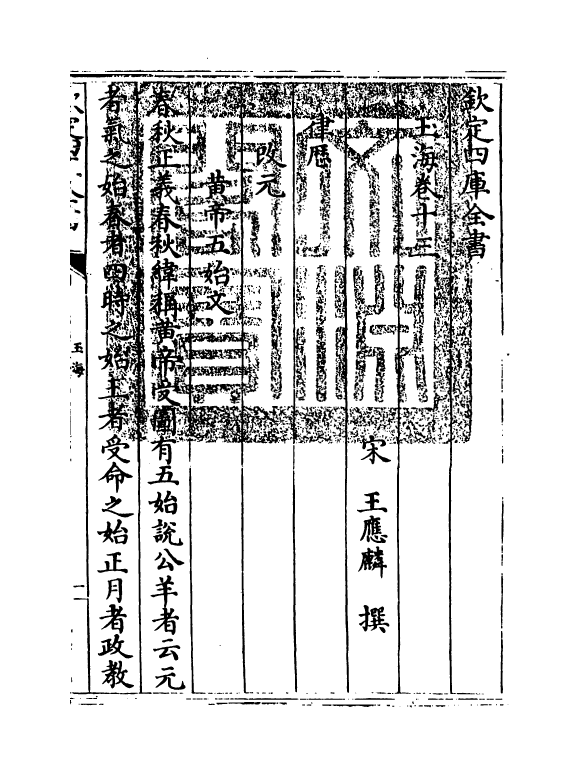 欽定四庫全書
玉海卷十三
宋 王應麟 撰
律歴
改元
黄帝五始文
春秋正義春秋緯稱黄帝受圖有五始說公羊者云元
者氣之始春者四時之始王者受命之始正月者政教
玉海